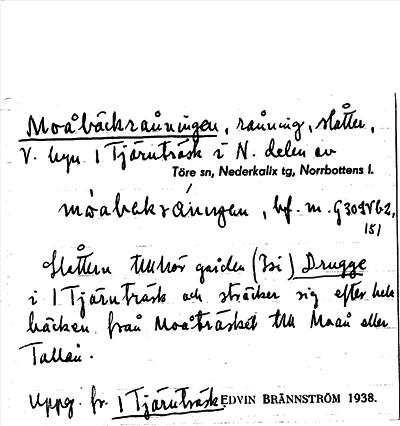 Moåbäckraůningen, raůning, slåtter,
V. byn 1 Tjärnträsk i N. delen av
Töre sn, Nederkalix tg, Norrbottens l.
móabäkråningan, bf. m.
151
Slåttern tillhör gården (Isi) Drugge
i 1 Tjärnträsk och sträcker sig efter hela
bäcken från Moåträsket till Moån eller
Tallån.
Uppg. fr. 1 Tjärnträsk. EDVIN BRÄNNSTRÖM 1938.